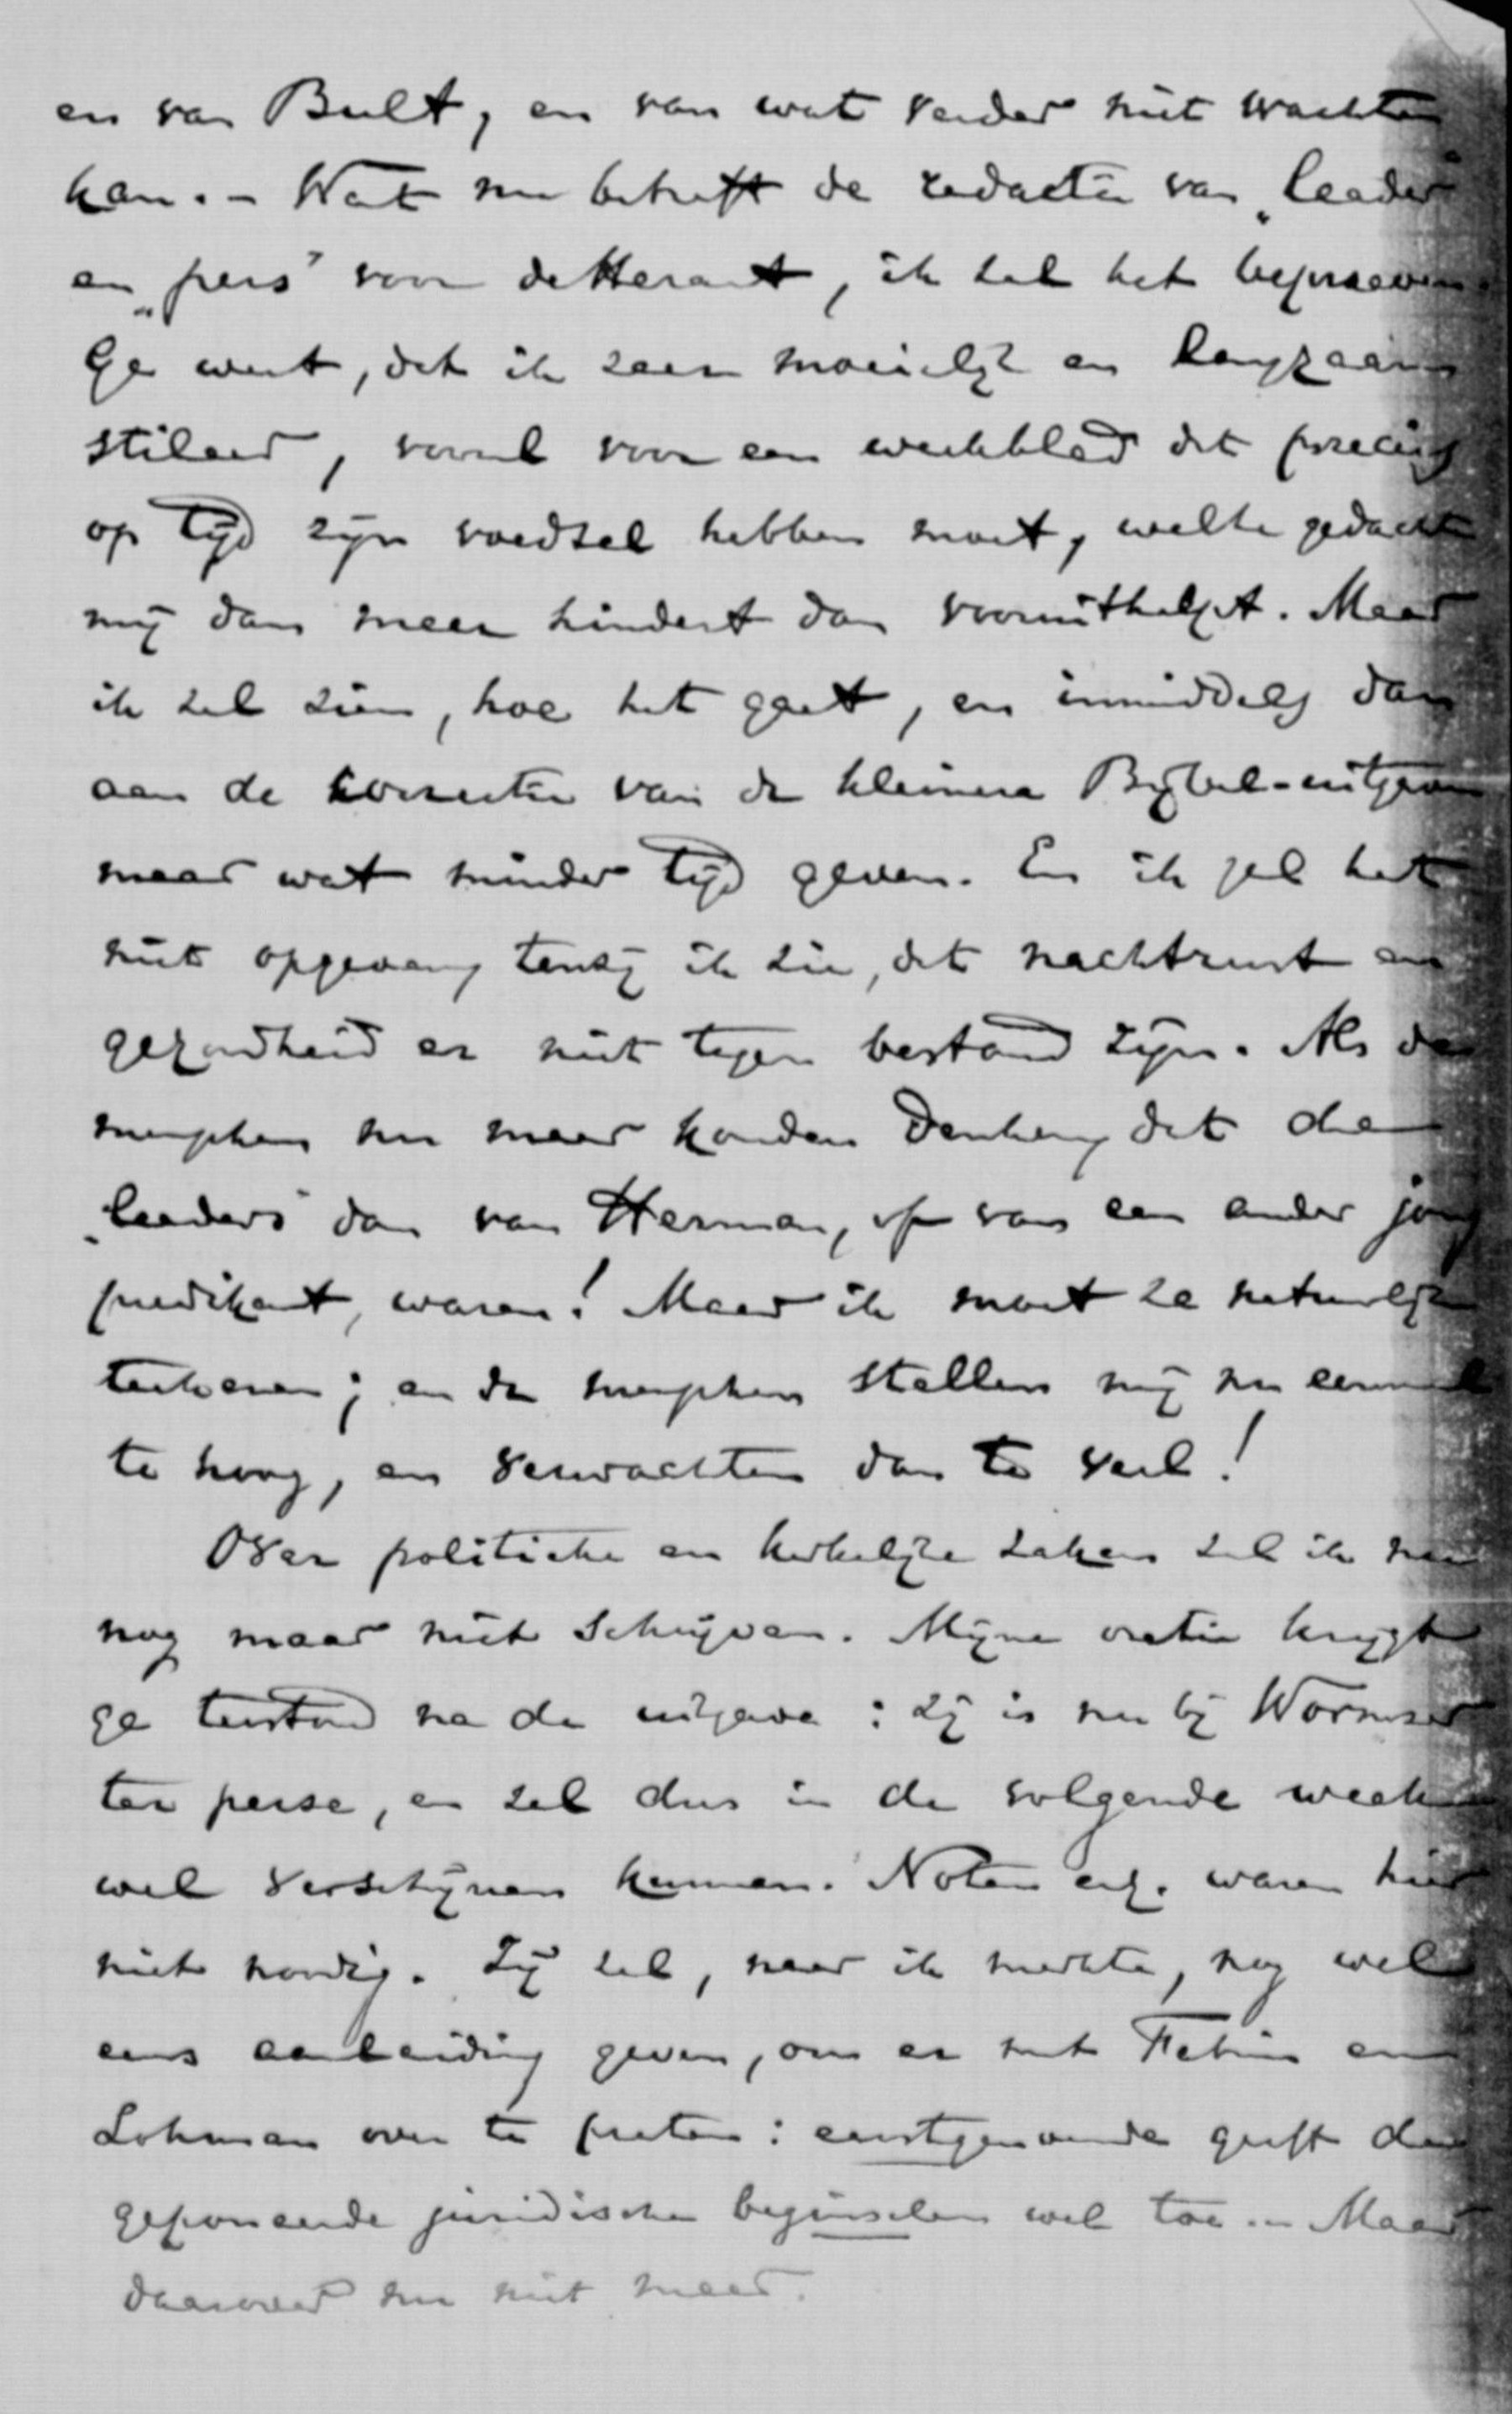 en van Bult, en van wat verder niet wachten
kan. – Wat nu betreft de redactie van „leader"
en „pers" voor de Heraut, ik zal het beproeven.
Ge weet, dat ik zeer moeielijk en langzaam
stileer, vooral voor een weekblad dat precies
op tijd zijn voedsel hebben moet, welke gedachte
mij dan meer hindert dan vooruithelpt. Maar
ik zal zien, hoe het gaat, en inmiddels dan
aan de correctie van de kleinere Bijbel-uitgaven
maar wat minder tijd geven. En ik zal het
niet opgeven, tenzij ik zie, dat nachtrust en
gezondheid er niet tegen bestand zijn. Als de
menschen nu maar konden denken, dat die
„leaders" dan van Herman, of van een ander jong
predikant, waren! Maar ik moet ze natuurlijk
teekenen; en de menschen stellen mij nu eenmaal
te hoog, en verwachten dan te veel!
Over politieke en kerkelijke zaken zal ik nu
nog maar niet schrijven. Mijne oratie krijgt
ge terstond na de uitgave: zij is nu bij Wormser
ter perse, en zal dus in de volgende week
wel verschijnen kunnen. Noten enz. waren hier
niet noodig. Zij zal, naar ik merkte, nog wel
eens aanleiding geven, om er met Fabius en
Lohman over te praten: eerstgenoemde geeft de
geponeerde juridische beginselen wel toe. – Maar
daarover nu niet meer.